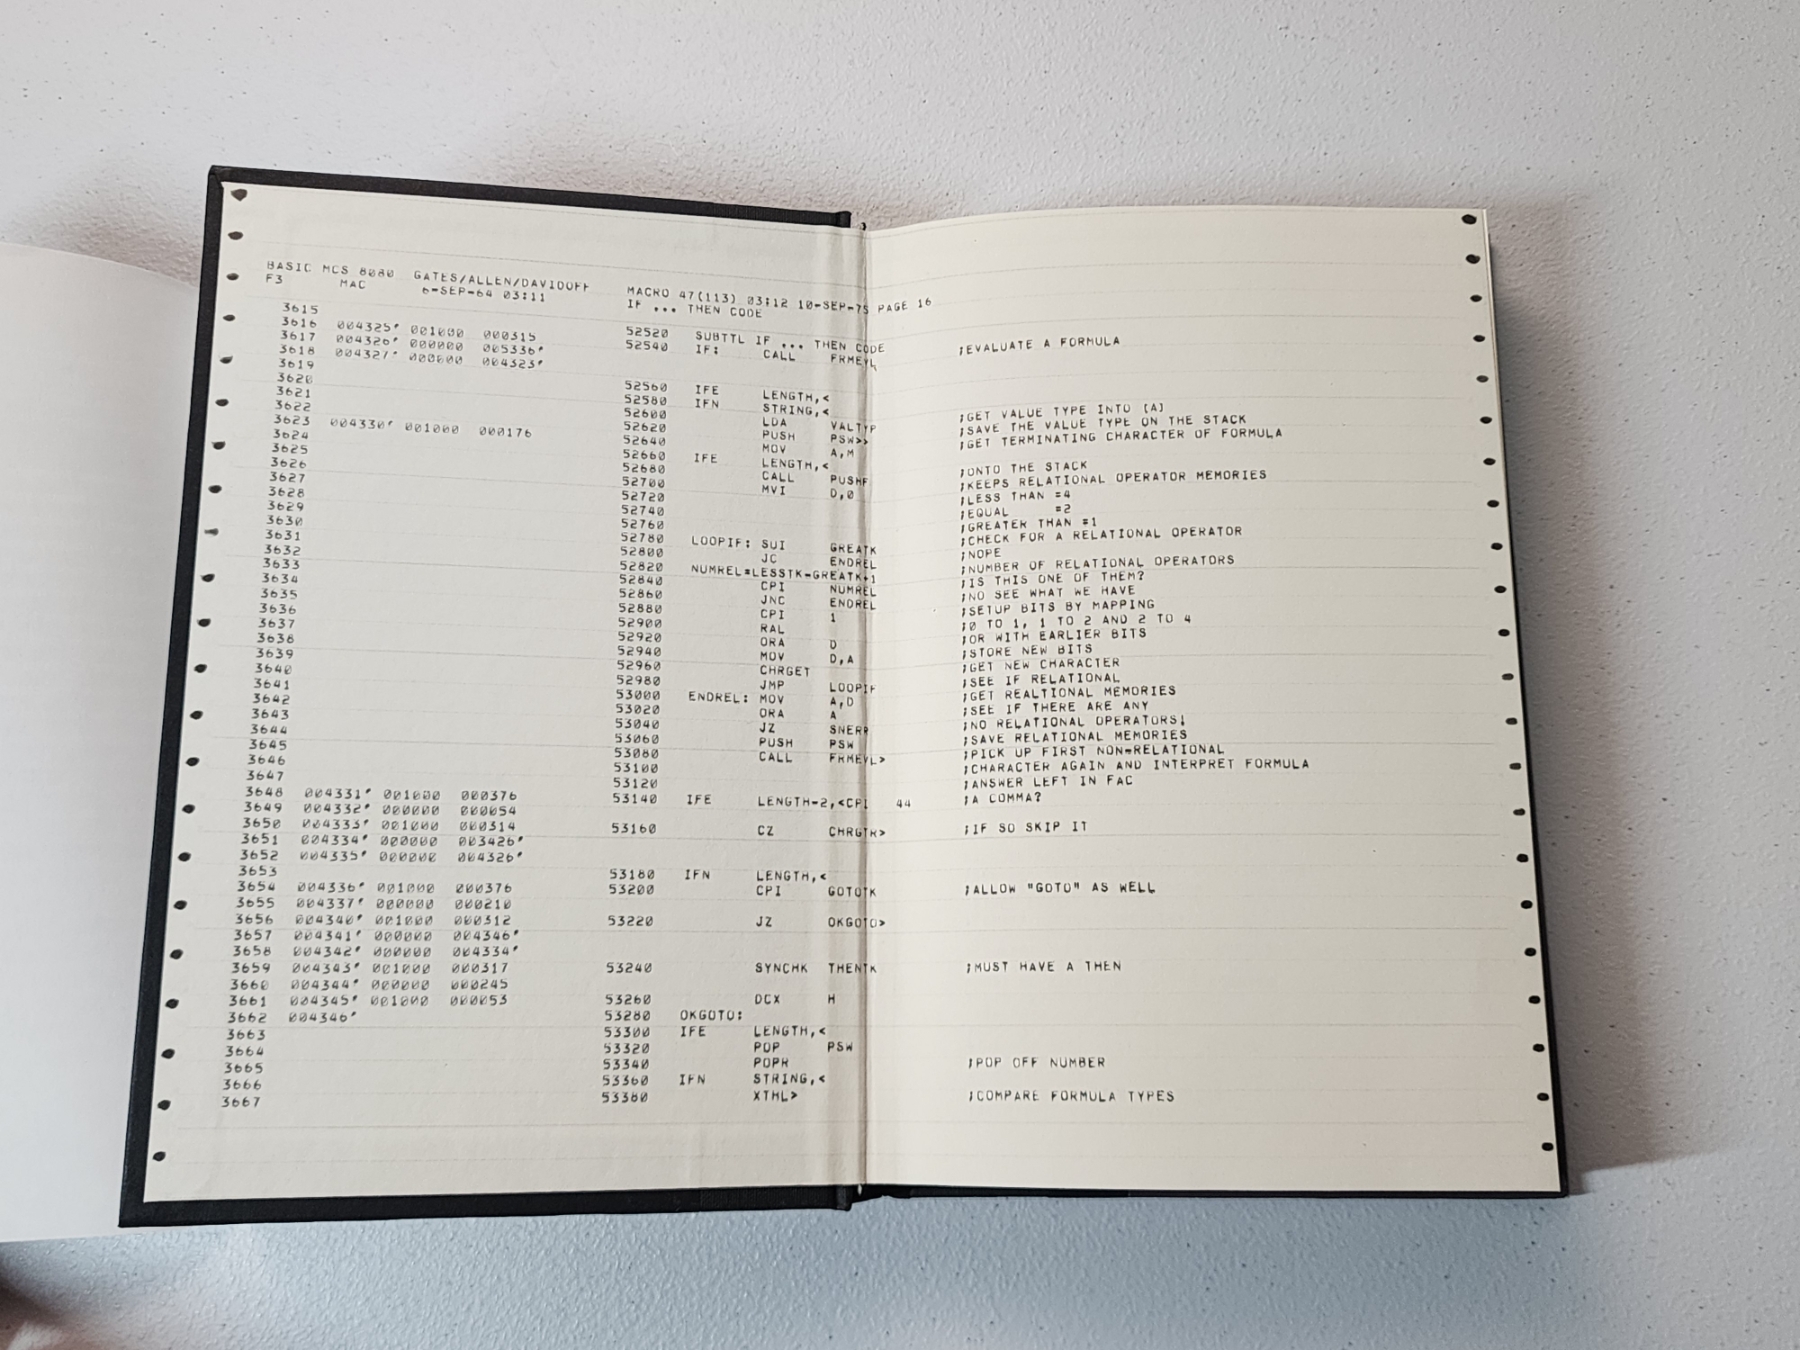 BASIC MCS 8080 GATES/ALLEN/DAVIDOFF MACRO 47(113) 03:12 10-SEP-75 PAGE 16
F3 MAC 6-SEP-64 03:11 IF ... THEN CODE
3615 52520 SUBTTL IF ... THEN CODE
3616 004325' 001000 000315 52540 IF: CALL FRMEVL ;EVALUATE A FORMULA
3617 004326' 000000 005336'
3618 004327' 000000 004323'
3619 52560 IFE LENGTH,<
3620 52580 IFN STRING,<
3621 52600 LDA VALTYP ;GET VALUE TYPE INTO [A]
3622 52620 PUSH PSW>> ;SAVE THE VALUE TYPE ON THE STACK
3623 004330' 001000 000176 52640 MOV A,M ;GET TERMINATING CHARACTER OF FORMULA
3624 52660 IFE LENGTH,<
3625 52680 CALL PUSHF ;ONTO THE STACK
3626 52700 MVI D,0 ;KEEPS RELATIONAL OPERATOR MEMORIES
3627 52720 ;LESS THAN =4
3628 52740 ;EQUAL =2
3629 52760 ;GREATER THAN =1
3630 52780 LOOPIF: SUI GREATK ;CHECK FOR A RELATIONAL OPERATOR
3631 52800 JC ENDREL ;NOPE
3632 52820 NUMREL=LESSTK-GREATK+1 ;NUMBER OF RELATIONAL OPERATORS
3633 52840 CPI NUMREL ;IS THIS ONE OF THEM?
3634 52860 JNC ENDREL ;NO SEE WHAT WE HAVE
3635 52880 CPI 1 ;SETUP BITS BY MAPPING
3636 52900 RAL ;0 TO 1, 1 TO 2 AND 2 TO 4
3637 52920 ORA D ;OR WITH EARLIER BITS
3638 52940 MOV D,A ;STORE NEW BITS
3639 52960 CHRGET ;GET NEW CHARACTER
3640 52980 JMP LOOPIF ;SEE IF RELATIONAL
3641 53000 ENDREL: MOV A,D ;GET REALTIONAL MEMORIES
3642 53020 ORA A ;SEE IF THERE ARE ANY
3643 53040 JZ SNERR ;NO RELATIONAL OPERATORS!
3644 53060 PUSH PSW ;SAVE RELATIONAL MEMORIES
3645 53080 CALL FRMEVL> ;PICK UP FIRST NON-RELATIONAL
3646 53100 ;CHARACTER AGAIN AND INTERPRET FORMULA
3647 53120 ;ANSWER LEFT IN FAC
3648 004331' 001000 000376 53140 IFE LENGTH-2,<CPI 44 ;A COMMA?
3649 004332' 000000 000054
3650 004333' 001000 000314 53160 CZ CHRGTR> ;IF SO SKIP IT
3651 004334' 000000 003426'
3652 004335' 000000 004326'
3653 53180 IFN LENGTH,<
3654 004336' 001000 000376 53200 CPI GOTOTK ;ALLOW "GOTO" AS WELL
3655 004337' 000000 000210
3656 004340' 001000 000312 53220 JZ OKGOTO>
3657 004341' 000000 004346'
3658 004342' 000000 004334'
3659 004343' 001000 000317 53240 SYNCHK THENTK ;MUST HAVE A THEN
3660 004344' 000000 000245
3661 004345' 001000 000053 53260 DCX H
3662 004346' 53280 OKGOTO:
3663 53300 IFE LENGTH,<
3664 53320 POP PSW
3665 53340 POPR ;POP OFF NUMBER
3666 53360 IFN STRING,<
3667 53380 XTHL> ;COMPARE FORMULA TYPES